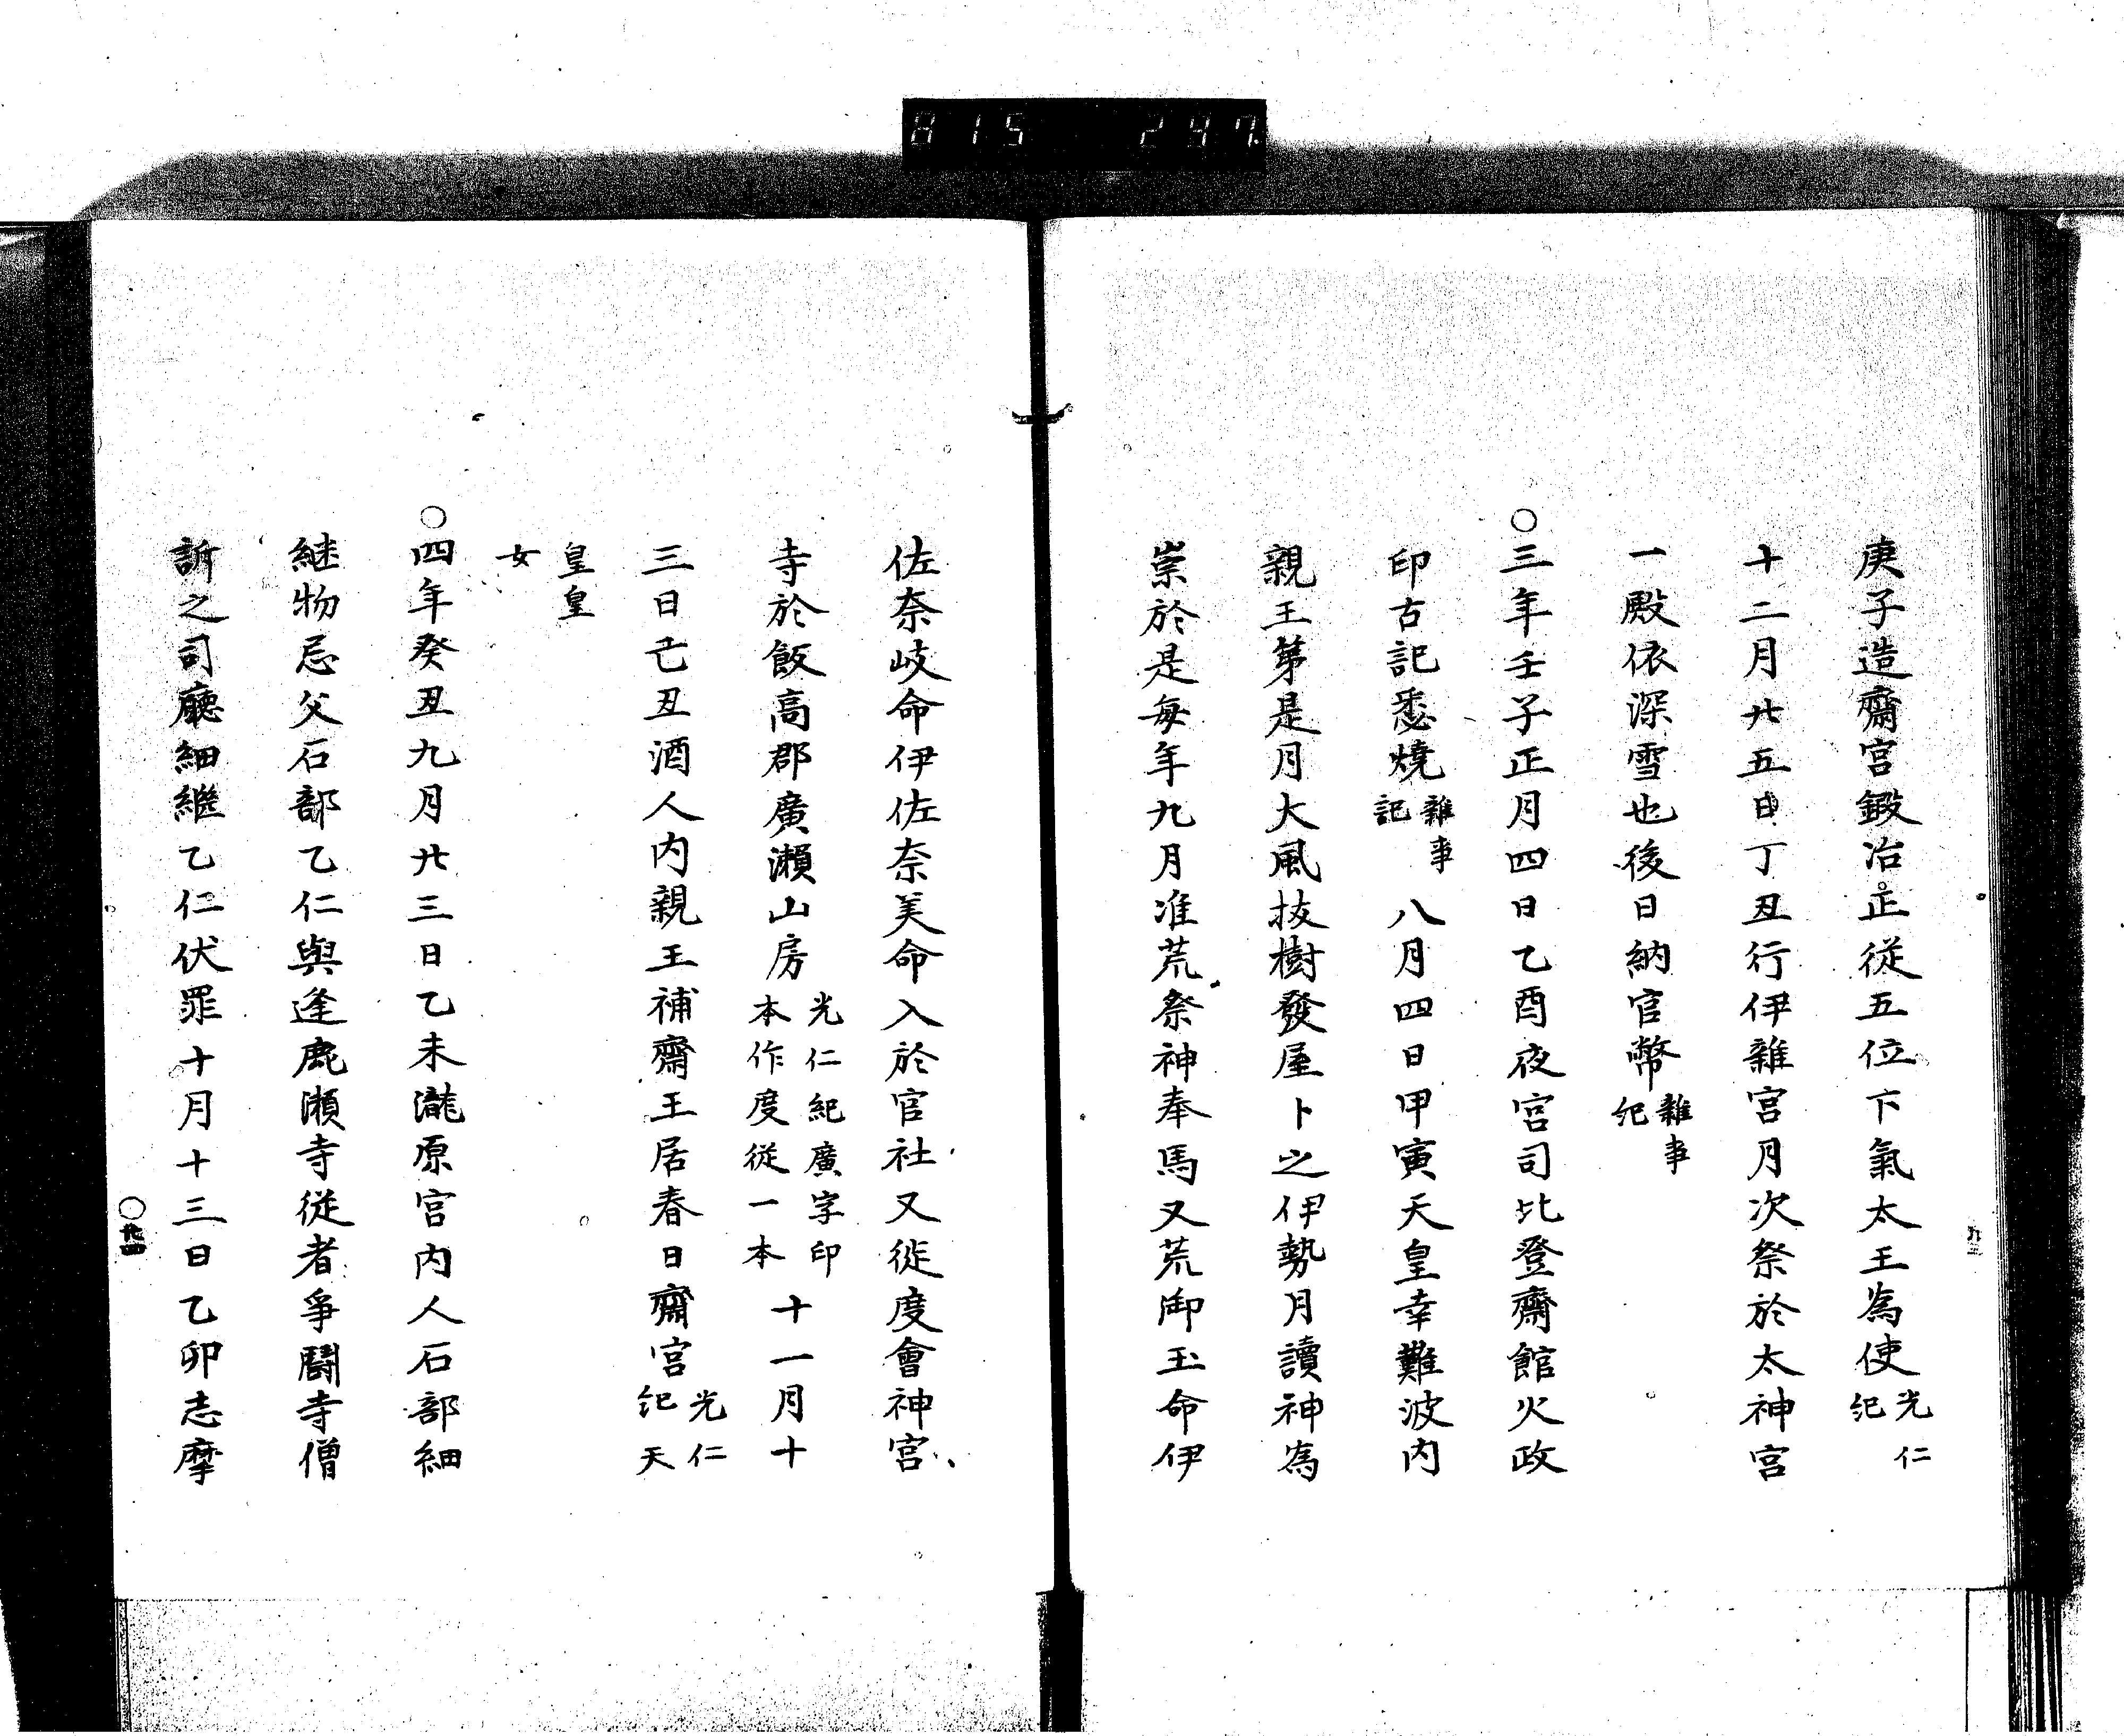 815 247
庚子造齋宮鍛冶正從五位下氣太王爲使光仁紀
十二月廿五日丁丑行伊雜宮月次祭於太神宮
一殿依深雪也後日納官幣雜事紀
○三年壬子正月四日乙酉夜宮司比登齋館火政
印古記悉燒雜事記八月四日甲寅天皇幸難波内
親王第是月大風抜樹發屋卜之伊勢月讀神爲
祟於是每年九月准荒祭神奉馬又荒御玉命伊
佐奈岐命伊佐奈美命入於官社又徙度會神宮
寺於飯高郡廣瀬山房光仁紀廣字印本作度從一本十一月十
三日己丑酒人内親王補齋王居春日齋宮光仁紀天
皇皇
女
○四年癸丑九月廿三日乙未瀧原宮内人石部細
継物忌父石部乙仁與逢鹿瀬寺從者爭鬪寺僧
訴之司廳細繼乙仁伏罪十月十三日乙卯志摩
○卅四